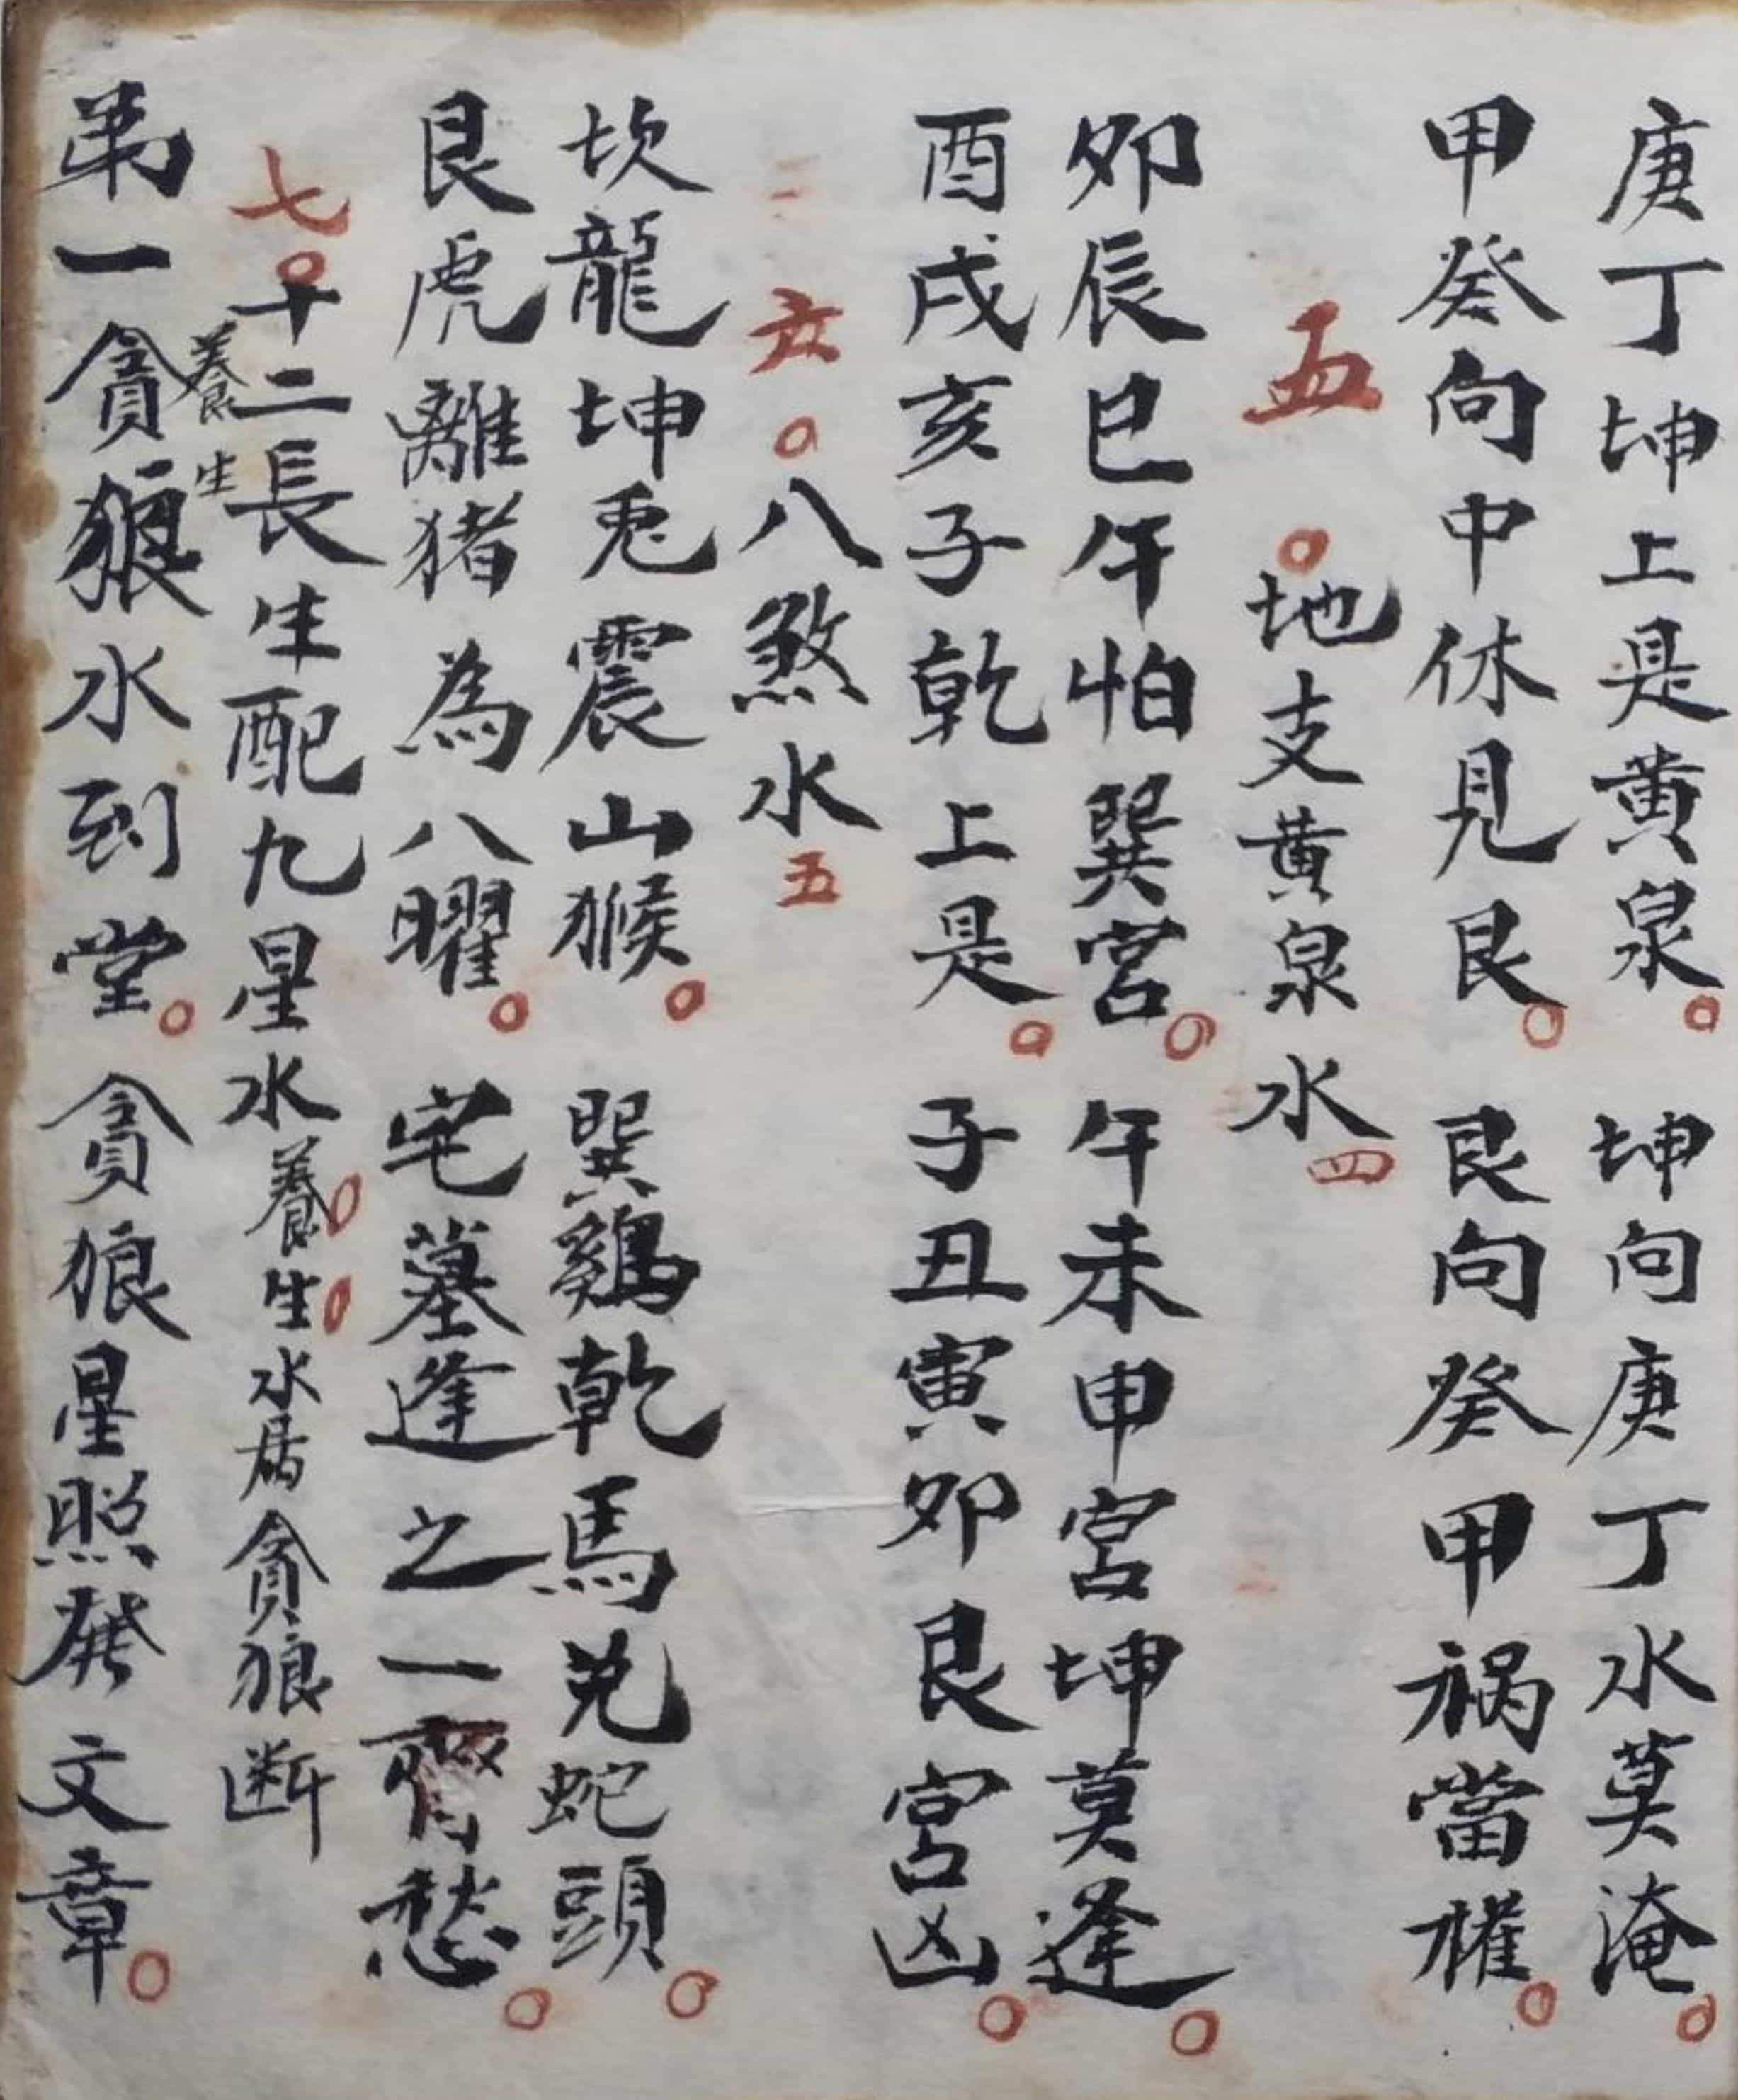 庚丁坤上是黄泉。坤向庚丁水莫淹。
甲癸向中休見艮。艮向癸甲祸當權。
五。地支黄泉水四
卯辰巳午怕巽宫。午未申宫坤莫逢。
酉戌亥子乾上是。子丑寅卯艮宫凶。
六。八煞水五
坎龍坤兎震山猴。巽鷄乾馬兑蛇頭。
艮虎離猪為八曜。宅墓逢之一齊愁。
七。十二長生配九星水養。生。水為貪狼断
養生
弟一貪狼水到堂。貪狼星照發文章。